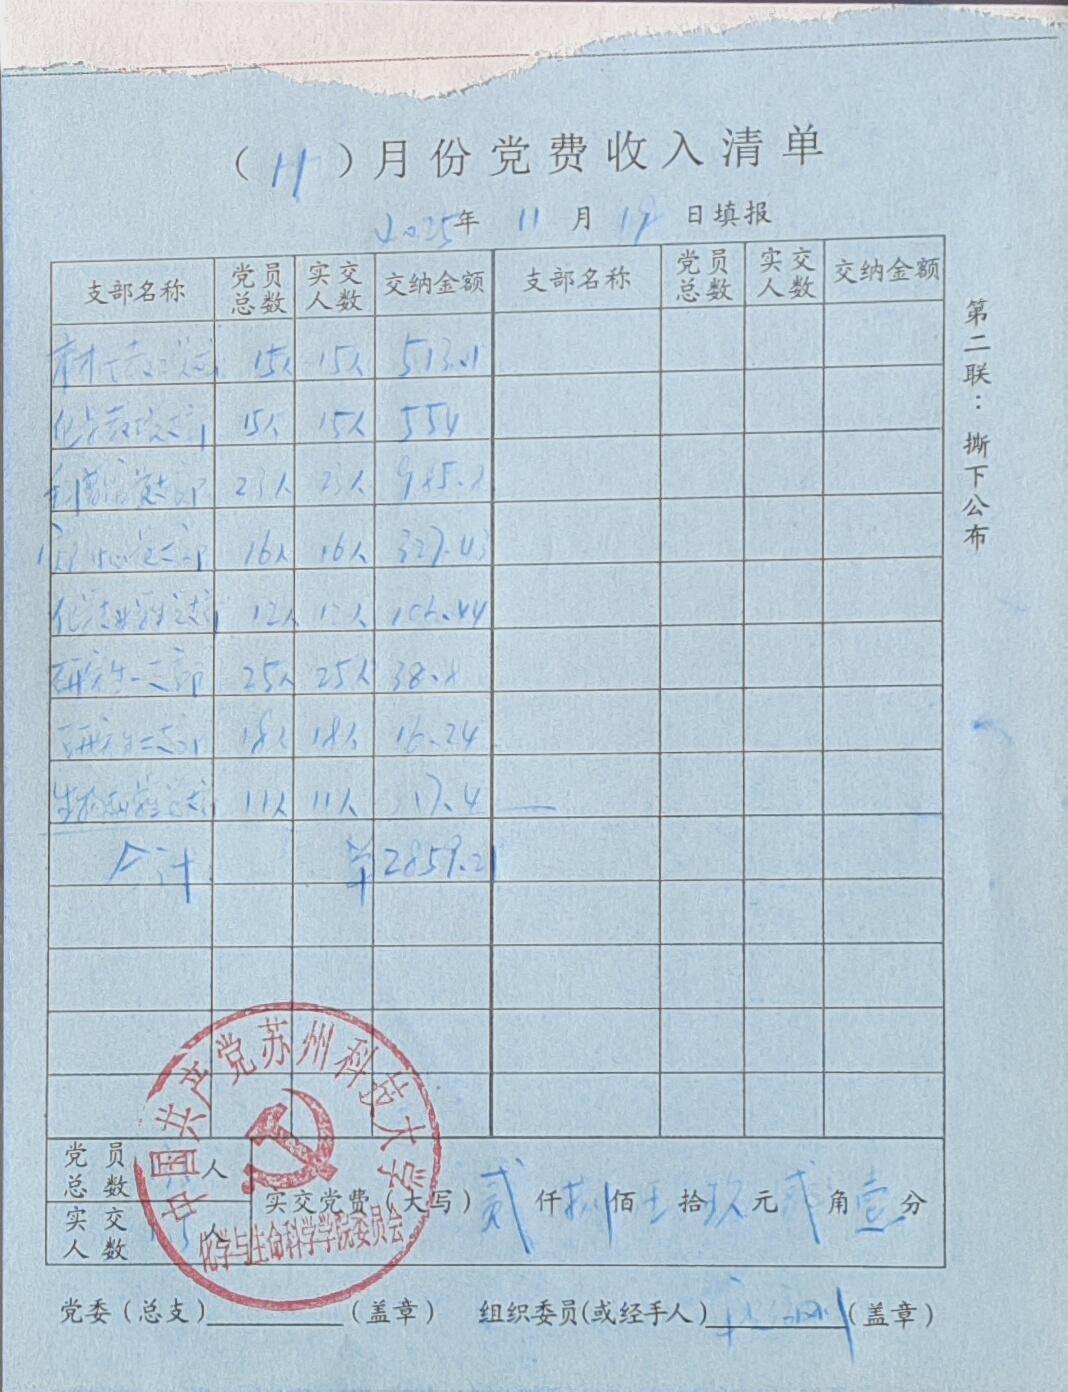 （11）月份党费收入清单
2025年 11 月 19 日填报
支部名称 党员总数 实交人数 交纳金额 支部名称 党员总数 实交人数 交纳金额
15人 15人 513.1
化学教工支部 15人 15人 554
23人 23人
16人 16人 327.43
12人 12人 106.44
研究生一支部 25人 25人 38.8
研究生二支部 18人 18人 16.24
11人 11人 17.4
合计 2859.21
党员总数 人
实交人数 人
实交党费（大写）贰仟捌佰五拾玖元贰角壹分
党委（总支）（盖章） 组织委员(或经手人)（盖章）
第二联：撕下公布
中国共产党苏州科技大学
化学与生命科学学院委员会